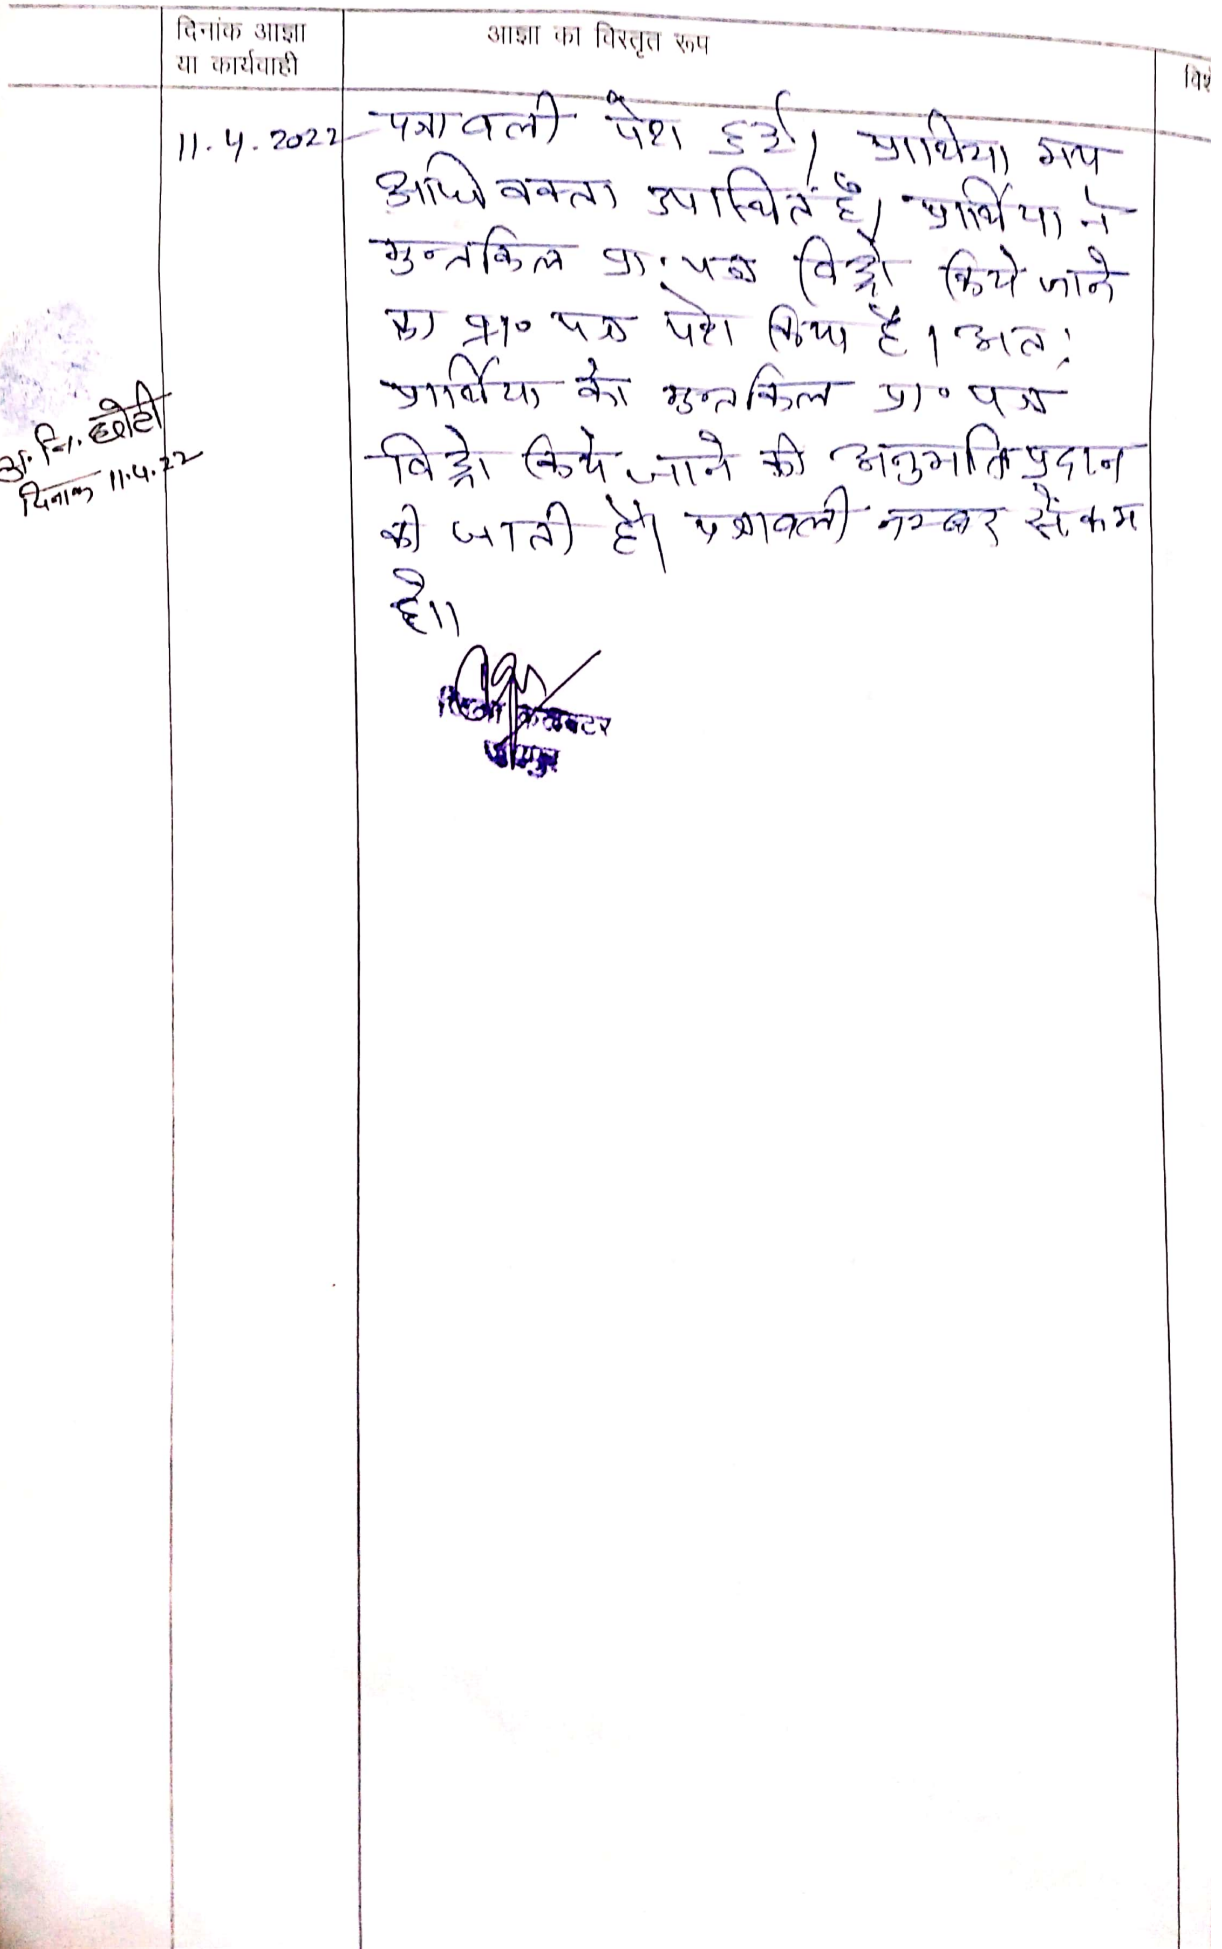 दिनांक आज्ञा
या कार्यवाही
आज्ञा का विस्तृत रूप
11.4.2022
पत्रावली पेश हुई। प्रार्थिया मय
अधिवक्ता उपस्थित है। प्रार्थिया ने
मुन्तकिल प्रा. पत्र विड्रो किये जाने
का प्रा० पत्र पेश किया है। अत:
प्रार्थिया को मुन्तकिल प्रा० पत्र
विड्रो किये जाने की अनुमति प्रदान
की जाती है। पत्रावली नम्बर से कम
है।।
अ. नि. छोटी
दिनांक 11.4.22
जिला कलक्टर